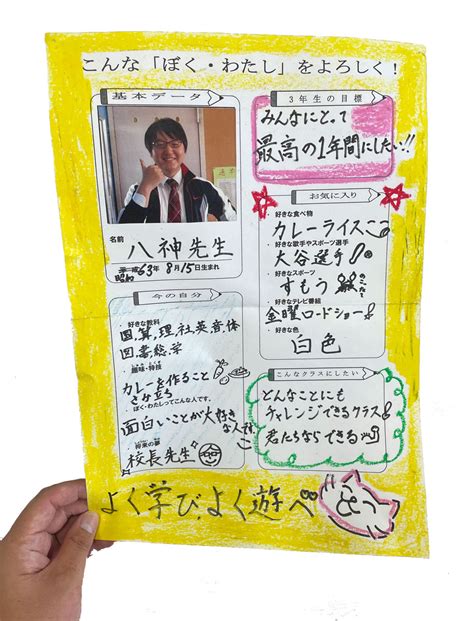 こんな「ぼく・わたし」をよろしく！
基本データ
名前
八神先生
昭和63年 8月15日生まれ
3年生の目標
みんなにとって
最高の1年間にしたい!!
お気に入り
・好きな食べ物
カレーライス
・好きな歌手やスポーツ選手
大谷選手!
・好きなスポーツ
すもう
・好きなテレビ番組
金曜ロードショー!
・好きな色
白色
今の自分
・好きな教科
国,算,理,社,英,音,体
図,書,総,学
・趣味・特技
カレーを作ること
さみ立ち
・ぼく・わたしってこんな人です。
面白いことが大好きな人
・将来の夢
校長先生
こんなクラスにしたい
どんなことにも
チャレンジできるクラス!
君たちならできる
よく学び、よく遊べ